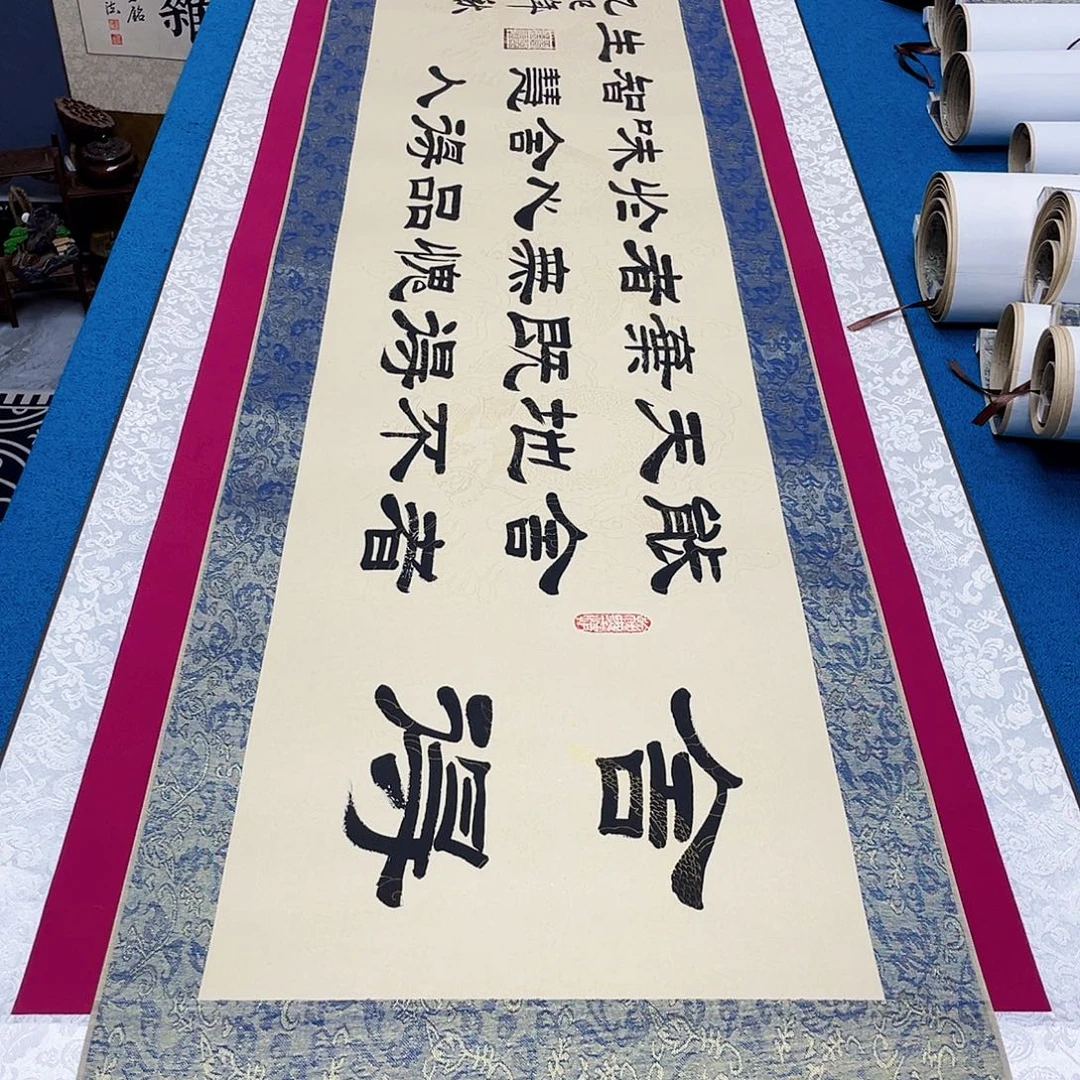 舍得
能舍者
天地不
棄既得
者無愧
於心品
味舍得
智慧人
生